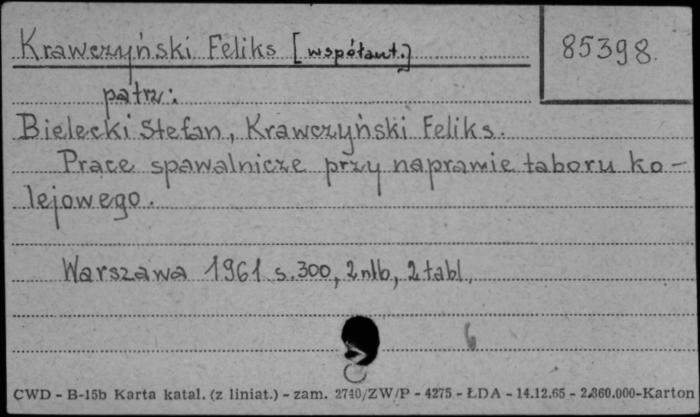 Krawczyński Feliks [współaut.]
85398.
patrz:
Bielecki Stefan, Krawczyński Feliks.
Prace spawalnicze przy naprawie taboru ko-
lejowego.
Warszawa 1961 s.300, 2nlb, 2 tabl.,
6
CWD - B-15b Karta katal. (z liniat.) - zam. 2740/ZW/P - 4275 - ŁDA - 14.12.65 - 2.360.000-Karton